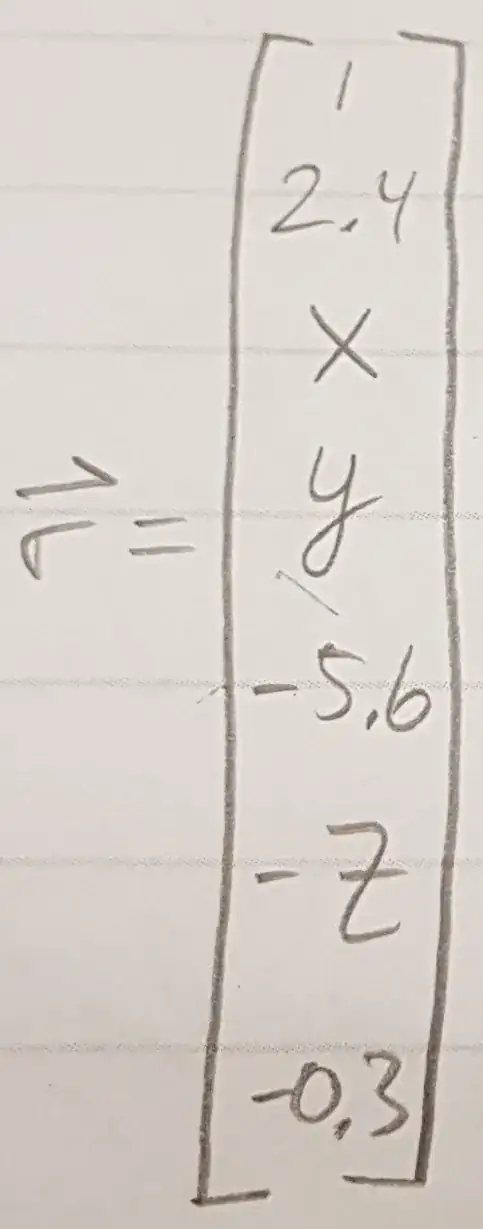 1
2.4
x
y
r⃗ =
-5.6
-z
-0.3